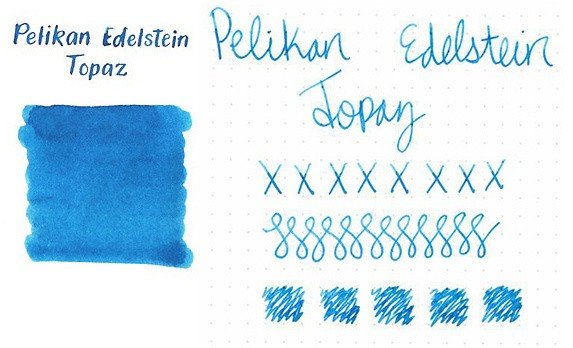 Pelikan Edelstein
Topaz
Pelikan Edelstein
Topaz
X X X X X X X X